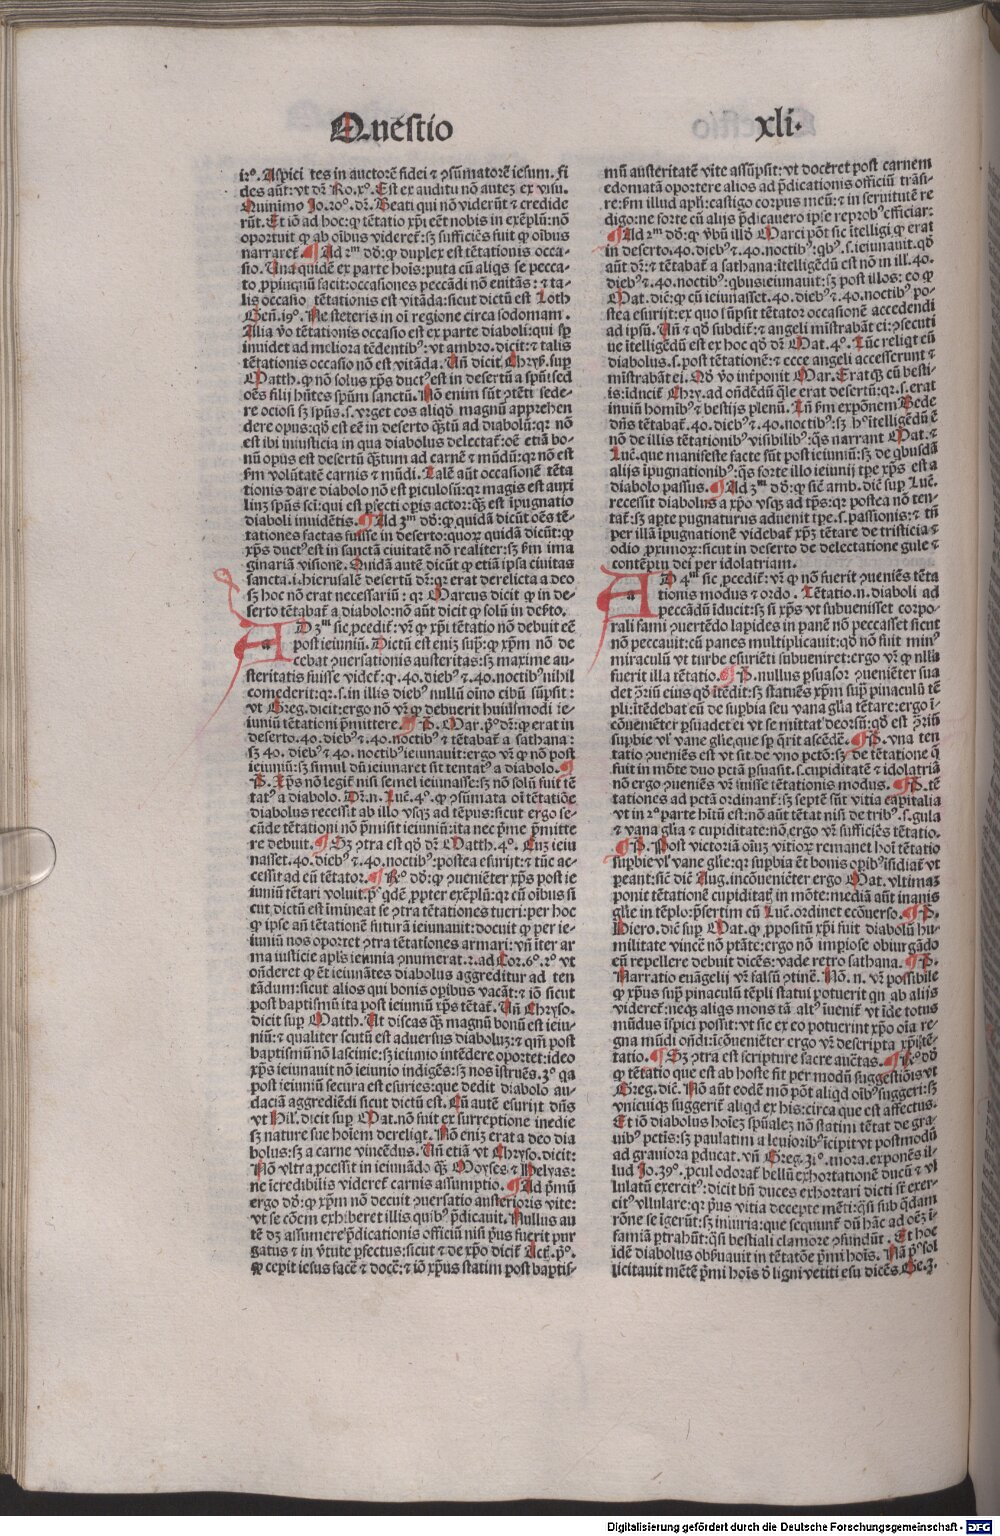 Questio
xli.
i2º. Aspiciẽtes in auctorẽ fidei ⁊ ꝯsũmatorẽ iesum. fi
des aũt: vt dr̃ Ro.xº. Est ex auditu nõ autez ex visu.
Quinimo Jo.20º. dr̃. Beati qui nõ viderũt ⁊ credide
rũt. Et iõ ad hoc: ꝙ tẽtatio xp̃i eẽt nobis in exẽplũ: nõ
oportuit ꝙ ab oĩbus videret᷑: sꝫ sufficiẽs fuit ꝙ oĩbus
narraret᷑. ¶ Ad 2ᵐ dõ: ꝙ duplex est tẽtationis occa-
sio. Una quidẽ ex parte hoĩs: puta cũ aliqs se pecca-
to ꝓpinquũ facit: occasiones peccãdi nõ euitãs: ⁊ ta-
lis occasio tẽtationis est vitãda: sicut dictũ est Loth
Geñ.19º. Ne steteris in oĩ regione circa sodomam.
Alia v̓o tẽtationis occasio est ex parte diaboli: qui sp̃
inuidet ad meliora tẽdentibꝰ: vt ambro. dicit: ⁊ talis
tẽtationis occasio nõ est vitãda. Uñ dicit Chryš. sup̱
Matth. ꝙ nõ solus xp̃s ductꝰ est in desertũ a sp̃u: sed
oẽs filij hñtes sp̃um sanctũ. Nõ enim sũt ꝯtẽti sede-
re ociosi sꝫ sp̃us .s. vrget eos aliqḋ magnũ apprehen
dere opus: qḋ est eẽ in deserto qᷓ̃tũ ad diabolũ: qꝛ nõ
est ibi iniusticia in qua diabolus delectat᷑: oẽ etiã bo-
nũ opus est desertũ qᷓ̃tum ad carnẽ ⁊ mũdũ: qꝛ nõ est
ẜm volũtatẽ carnis ⁊ mũdi. Talẽ aũt occasionẽ tẽta
tionis dare diabolo nõ est ꝑiculosũ: qꝛ magis est auxi
linꝫ sp̃us sc̃i: qui est ꝑfecti oꝑis actor: qᷓ̃ est ĩpugnatio
diaboli inuidẽtis. ¶ Ad 3ᵐ dõ: ꝙ quidã dicũt oẽs tẽ-
tationes factas fuisse in deserto: quoꝝ quidã dicũt: ꝙ
xp̃s ductꝰ est in sanctã ciuitatẽ nõ realiter: sꝫ ẜm ima
ginariã visione. Quidã autẽ dicũt ꝙ etiã ipsa ciuitas
sancta .i. hierusalẽ desertũ dr̃: qꝛ erat derelicta a deo
sꝫ hoc nõ erat necessariũ: qꝛ Marcus dicit ꝙ in de-
serto tẽtabat᷑ a diabolo: nõ aũt dicit ꝙ solũ in deẜto.
AD 3ᵐ sic ꝓcedit᷑: vr̃ ꝙ xp̃i tẽtatio nõ debuit eẽ
post ieiuniũ. Dictũ est eniꝫ sup̱: ꝙ xp̃m nõ de
cebat ꝯuersationis austeritas: sꝫ maxime au-
steritatis fuisse videt᷑: ꝙ .40. diebꝰ ⁊ .40. noctibꝰ nihil
comederit: qꝛ .s. in illis diebꝰ nullũ oĩno cibũ sũpsit:
vt Greg. dicit: ergo nõ vr̃ ꝙ debuerit huiusmodi ie-
iuniũ tẽtationi p̃mittere. ¶ P. Mar.p̃º.dr̃: ꝙ erat in
deserto.40.diebꝰ ⁊ .40.noctibꝰ ⁊ tẽtabat᷑ a sathana:
sꝫ 40. diebꝰ ⁊ 40. noctibꝰ ieiunauit: ergo vr̃ ꝙ nõ post
ieiuniũ: sꝫ simul dũ ieiunaret sit tentatꝰ a diabolo. ¶
P. Xp̃s nõ legit᷑ nisi semel ieiunasse: sꝫ nõ solũ fuit tẽ
tatꝰ a diabolo. Dr̃.n. Luẽ.4º. ꝙ ꝯsũmata oĩ tẽtatiõe
diabolus recessit ab illo vsqꝫ ad tẽpus: sicut ergo se-
cũde tẽtationi nõ p̃misit ieiuniũ: ita nec p̃me p̃mitte
re debuit. ¶ Sꝫ ꝯtra est qḋ dr̃ Matth.4º. Cuꝫ ieiu
nasset .40. diebꝰ ⁊ 40. noctibꝰ: postea esurijt: ⁊ tũc ac-
cessit ad eũ tẽtator. ¶ Rº. dõ: ꝙ ꝯueniẽter xp̃s post ie
iuniũ tẽtari voluit. p̃º qdẽ ꝓpter exẽplũ: qꝛ cũ oĩbus si
cut dictũ est ĩmineat se ꝯtra tẽtationes tueri: per hoc
ꝙ ipse añ tẽtatione futurã ieiunauit: docuit ꝙ per ie-
iuniũ nos oportet ꝯtra tẽtationes armari: vñ iter ar
ma iusticie apl̃s ieiunia ꝯnumerat .2. ad Cor.6º. 2º vt
oñderet ꝙ ẽt ieiunãtes diabolus aggreditur ad ten
tãdum: sicut alios qui bonis oꝑibus vacãt: ⁊ iõ sicut
post baptismũ ita post ieiuniũ xp̃s tẽtat᷑. Uñ Chryso.
dicit sup̱ Matth. Ut discas qᷓ̃ magnũ bonũ est ieiu-
niũ: ⁊ qualiter scutũ est aduersus diaboluꝫ: ⁊ qm̃ post
baptismũ nõ lasciuie: sꝫ ieiunio intẽdere oportet: ideo
xp̃s ieiunauit nõ ieiunio indigẽs: sꝫ nos ĩstruẽs. 3º qa
post ieiuniũ secura est esuries: que dedit diabolo au-
daciã aggrediẽdi sicut dictũ est. Cũ autẽ esurijt dñs
vt Hil. dicit sup̱ Mat. nõ fuit ex surreptione inedie
sꝫ nature sue hoĩem dereliqt. Nõ eniꝫ erat a deo dia
bolus: sꝫ a carne vincẽdus. Uñ etiã vt Chryso. dicit:
Nõ vltra ꝓcessit in ieiunãdo qᷓ̃ Moyses ⁊ Helyas:
ne ĩcredibilis videret᷑ carnis assumptio. ¶ Ad p̃mũ
ergo dõ: ꝙ xp̃m nõ decuit ꝯuersatio austerioris vite:
vt se cõem exhiberet illis quibꝰ p̃dicauit. Nullus au
tẽ dꝫ assumere p̃dicationis officiũ nisi p̃us fuerit pur
gatus ⁊ in v̓tute ꝑfectus: sicut ⁊ de xp̃o dicit᷑ Act.p̃º.
ꝙ cepit iesus facẽ ⁊ docẽ: ⁊ iõ xp̃us statim post baptis-
mũ austeritatẽ vite assũpsit: vt doceret post carnem
edomatã oportere alios ad p̃dicationis officiũ trãsi-
re: ẜm illud apl̃i: castigo corpus meũ: ⁊ in seruitutẽ re
digo: ne forte cũ alijs p̃dicauero ipse reprobꝰ efficiar:
¶ Ad 2ᵐ dõ: ꝙ v̓bũ illḋ Marci põt sic ĩtelligi ꝙ erat
in deserto.40.diebꝰ ⁊ .40.noctibꝰ: qbꝰ .s. ieiunauit. qḋ
aũt dr̃: ⁊ tẽtabat᷑ a sathana: ĩtelligẽdũ est nõ in ill̃.40.
diebꝰ ⁊ .40.noctibꝰ: qbus ieiunauit: sꝫ post illos: eo ꝙ
Mat. diẽ: ꝙ cũ ieiunasset.40.diebꝰ ⁊ .40.noctibꝰ po-
stea esurijt: ex quo sũpsit tẽtator occasionẽ accedendi
ad ipsũ. Uñ ⁊ qḋ subdit᷑: ⁊ angeli mĩstrabãt ei: ꝯsecuti
ue ĩtelligẽdũ est ex hoc qḋ dr̃ Mat.4º. Tũc reliqt eũ
diabolus .s. post tẽtationẽ: ⁊ ecce angeli accesserunt ⁊
mĩstrabãt ei. Qḋ v̓o ĩterponit Mar. Eratqꝫ cũ besti-
is: iducit᷑ Chry. ad oñdẽdũ qle erat desertũ: qꝛ .s. erat
inuiũ homĩbꝰ ⁊ bestijs plenũ. Tñ ẜm expõnem Bede
dñs tẽtabat᷑.40.diebꝰ ⁊ .40.noctibꝰ: sꝫ hᵒ ĩtelligẽdũ ẽ
nõ de illis tẽtationibꝰ visibilibꝰ: q̃s narrant Mat. ⁊
Luẽ. que manifeste facte sũt post ieiuniũ: sꝫ de qbusdã
alijs ĩpugnationibꝰ: q̃s forte illo ieiunij tp̃e xp̃s est a
diabolo passus. ¶ Ad 3ᵐ dõ: ꝙ sic̃ amb. diẽ sup̱ Luẽ.
recessit diabolus a xp̃o vsqꝫ ad tp̃s: qꝛ postea nõ ten-
tat᷑: sꝫ apte pugnaturus aduenit tp̃e .s. passionis: ⁊ tñ
per illã ĩpugnationẽ videbat᷑ xp̃ꝫ tẽtare de tristicia ⁊
odio ꝓximoꝝ: sicut in deserto de delectatione gule ⁊
contẽptu dei per idolatriam.
AD 4ᵐ sic ꝓcedit᷑: vr̃ ꝙ nõ fuerit ꝯueniẽs tẽta
tionis modus ⁊ ordo. Tẽtatio.n. diaboli ad
peccãdũ ĩducit: sꝫ si xp̃s vt subuenisset corpo-
rali fami ꝯuertẽdo lapides in panẽ nõ peccasset sicut
nõ peccauit: cũ panes multiplicauit: qḋ nõ fuit minꝰ
miraculũ vt turbe esuriẽti subueniret: ergo vr̃ ꝙ nlla
fuerit illa tẽtatio. ¶ P. nullus ꝑsuasor ꝯueniẽter sua
det ꝯ̃riũ eius qḋ ĩtẽdit: sꝫ statuẽs xp̃m sup̱ pinaculũ tẽ
pli: itẽdebat eũ de suꝑbia seu vana glĩa tẽtare: ergo ĩ-
cõueniẽter ꝑsuadet ei vt se mittat deorsũ: qḋ est ꝯ̃riũ
suꝑbie vl̓ vane glĩe, que sp̃ q̃rit ascẽdẽ. ¶ P. vna ten
tatio ꝯueniẽs est vt sit de vno pctõ: sꝫ de tẽtatione q̃
fuit in mõte duo pctã ꝑsuasit .s. cupiditatẽ ⁊ idolatriã
nõ ergo ꝯueniẽs vr̃ fuisse tẽtationis modus. ¶ P. tẽ
tationes ad pctã ordinant᷑: sꝫ septẽ sũt vitia capitalia
vt in 2º parte hĩtũ est: nõ aũt tẽtat nisi de tribꝰ .s. gula
⁊ vana glĩa ⁊ cupiditate: nõ ergo vr̃ sufficiẽs tẽtatio.
¶ P. Post victoriã oĩuꝫ vitioꝝ remanet hoĩ tẽtatio
suꝑbie vl̓ vane glĩe: qꝛ suꝑbia ẽt bonis oꝑibꝰ ĩsidiat᷑ vt
ꝑeant: sic̃ diẽ Aug. incõueniẽter ergo Mat. vltimaꝫ
ponit tẽtationẽ cupiditatꝫ in mõte: mediã aũt inanis
glĩe in tẽplo: p̃sertim cũ Luẽ. ordinet ecõuerso. ¶ P.
Hiero. diẽ sup̱ Mat. ꝙ ꝓpositũ xp̃i fuit diabolũ hu-
militate vincẽ nõ ptãte: ergo nõ imꝑiose obiurgãdo
eũ repellere debuit dicẽs: vade retro sathana. ¶ P.
Narratio euãgelij vr̃ falsũ ꝯtinẽ. Nõ.n. vr̃ possibile
ꝙ xp̃us sup̱ pinaculũ tẽpli statui potuerit qn ab alijs
videret᷑: neqꝫ aliqs mons tã altꝰ iuenit᷑ vt ĩde totus
mũdus ĩspici possit: vt sic ex eo potuerint xp̃o oĩa re-
gna mũdi oñdi: ĩcõueniẽter ergo vr̃ descripta xp̃i tẽ-
tatio. ¶ Sꝫ ꝯtra est scripture sacre auc̃tas. ¶ Rº dõ
ꝙ tẽtatio que est ab hoste fit per modũ suggestiõis vt
Greg. diẽ. Nõ aũt eodẽ mõ põt aliqd oĩbꝰ suggeri: sꝫ
vnicuiqꝫ suggerit᷑ aliqd ex his: circa que est affectus.
Et iõ diabolus hoĩeꝫ sp̃ualeꝫ nõ statim tẽtat de gra-
uibꝰ pctĩs: sꝫ paulatim a leuioribꝰ ĩcipit vt postmodũ
ad grauiora ꝑducat. vñ Greg.31º.mora.exponẽs il
lud Jo.39º. ꝓcul odorat᷑ bellũ exhortationẽ ducũ ⁊ vl
lulatũ exercitꝰ: dicit bñ duces exhortari dicti st̃ exer-
citꝰ vllulare: qꝛ p̃us vitia decepte mẽti: q̃si sub q̃dam
rõne se ĩgerũt: sꝫ iniuria: que sequunt᷑ dũ hãc ad oẽꝫ ĩ-
famiã ꝑtrahũt: q̃si bestiali clamore ꝯfundũt. Et hoc
idẽ diabolus obẜuauit in tẽtatõe p̃mi hoĩs. Nã p̃º sol
licitauit mẽtẽ p̃mi hoĩs ď ligni vetiti esu dicẽs. Ge.3.
Digitalisierung gefördert durch die Deutsche Forschungsgemeinschaft - DFG